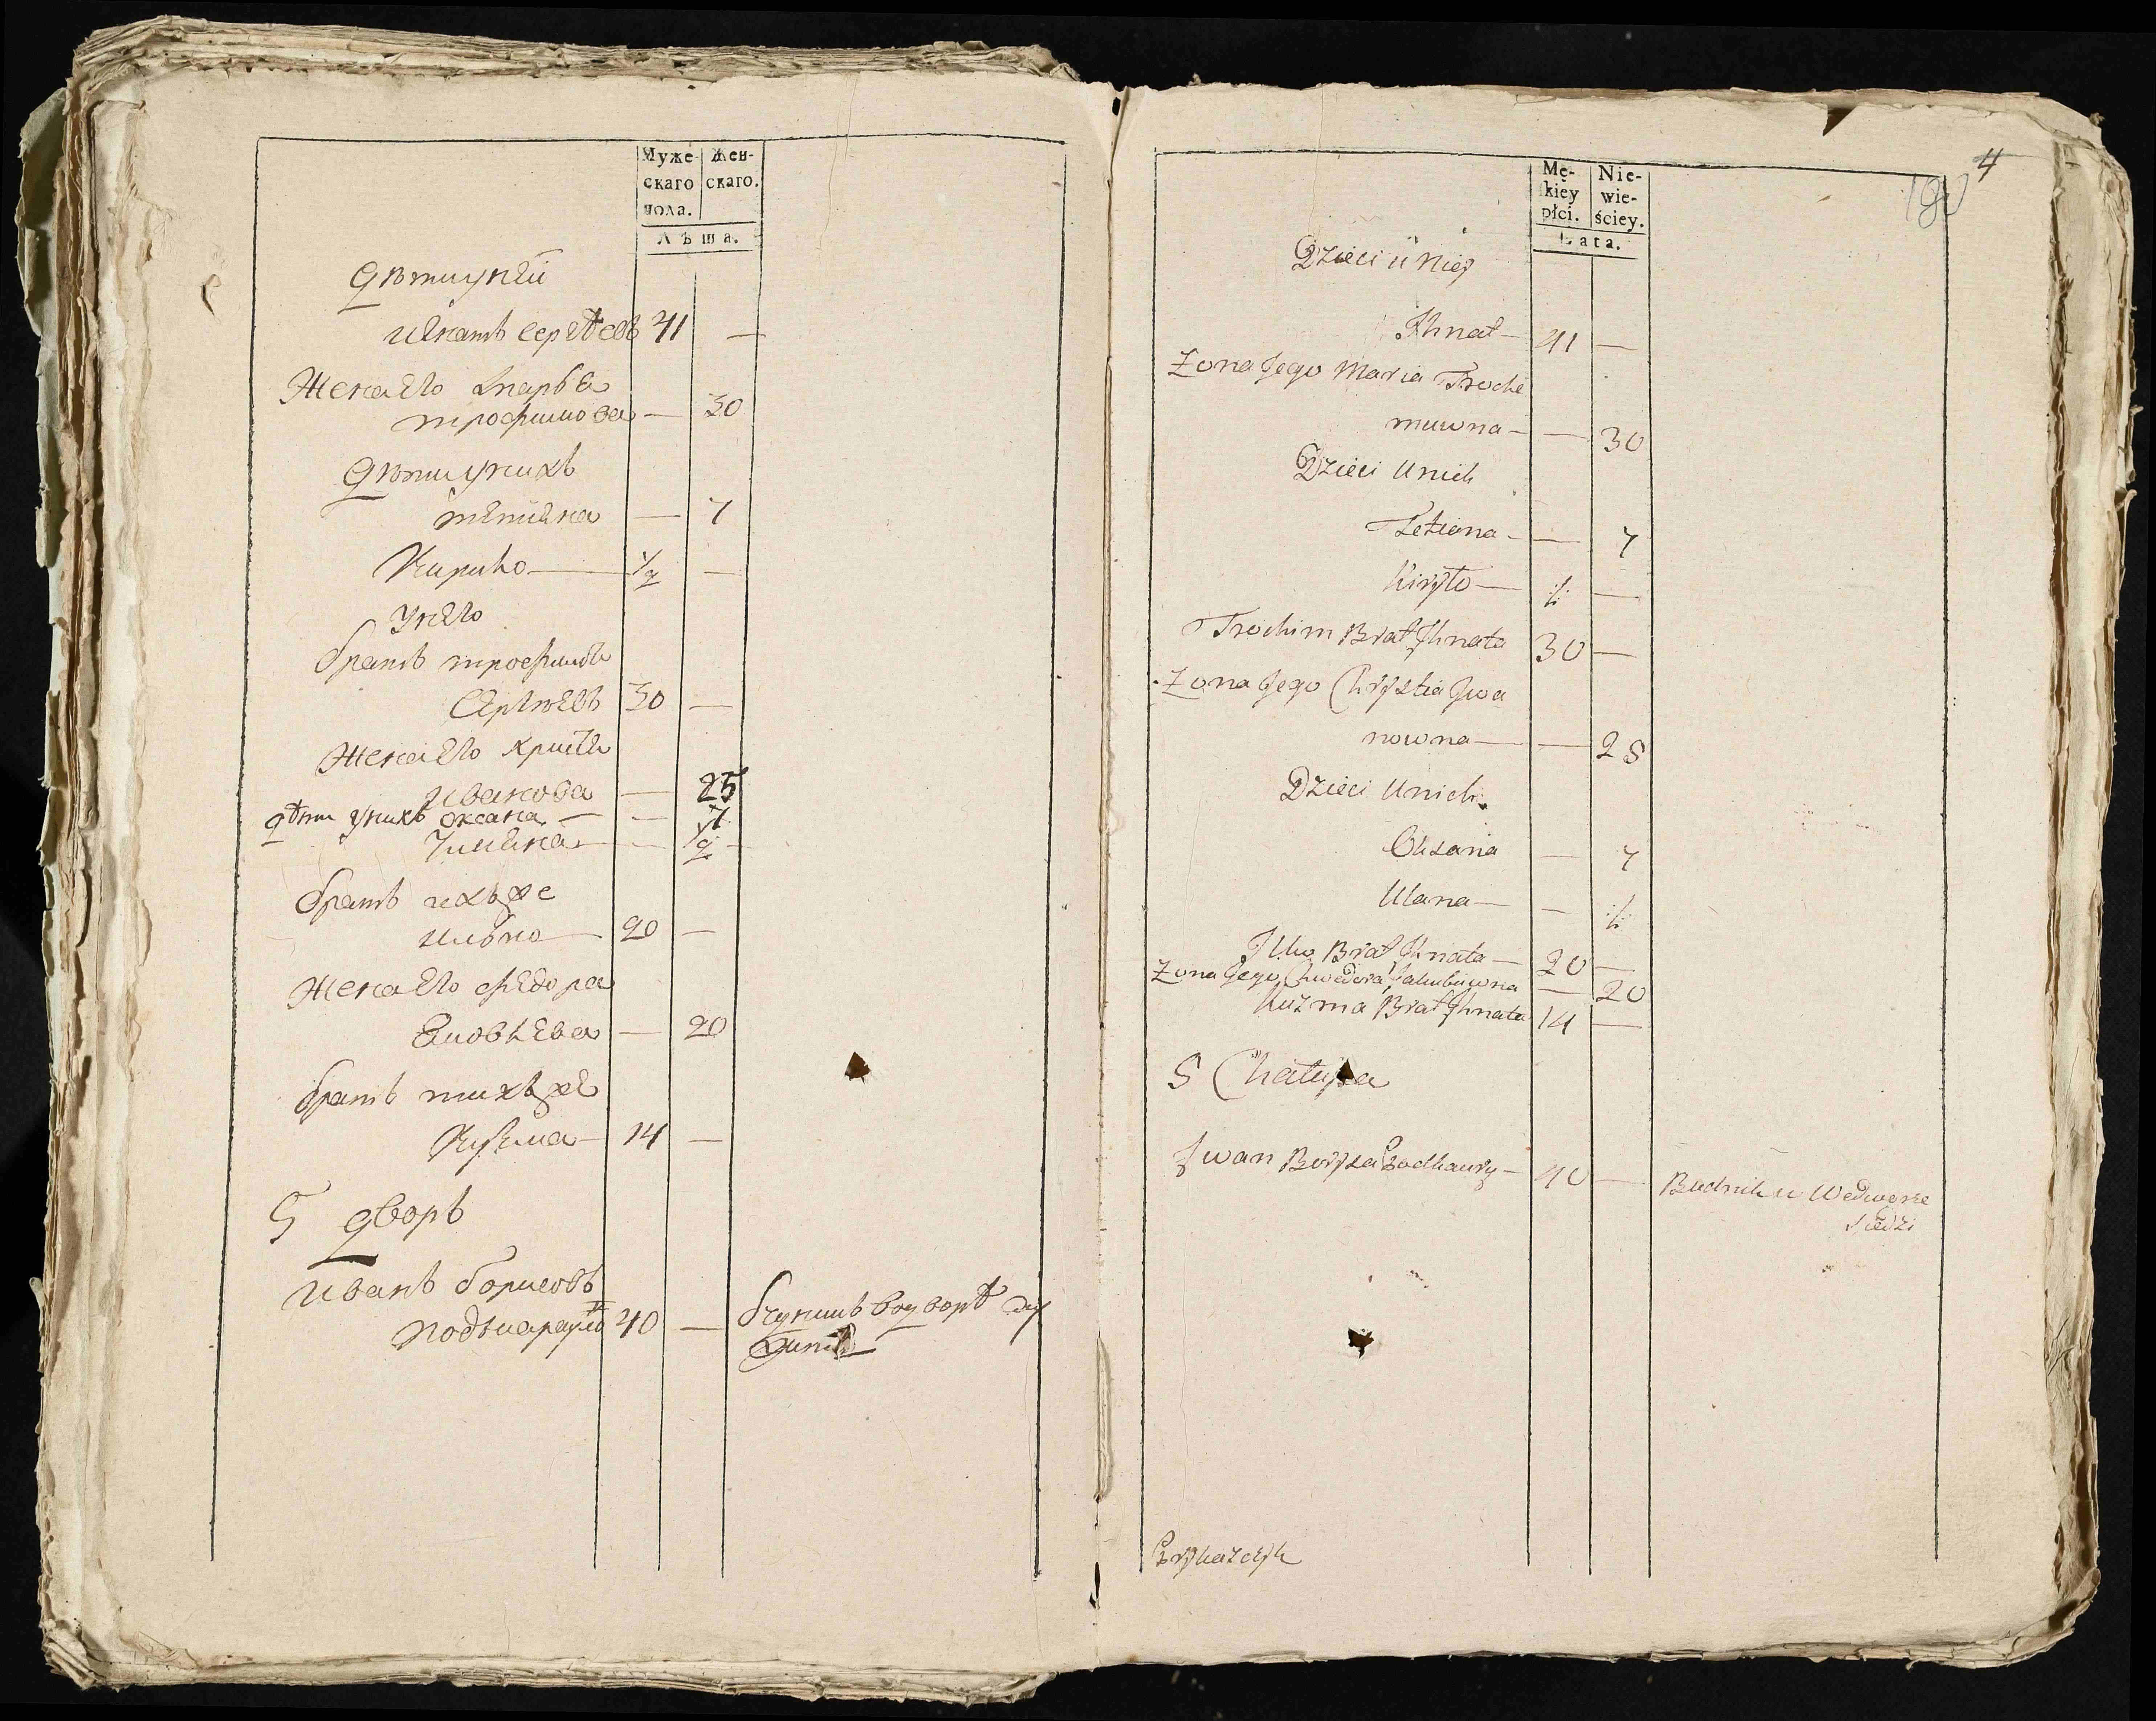 Муже-
скаго
пола.
Жен-
скаго.
Лѣта.
Дѣти у ней
Игнатъ Сергѣевъ 41 —
Жена его Марья
Трофимова — 30
Дѣти у нихъ
Тетiяна — 7
Кирило — 1/2 —
У него
братъ Трофимъ
Сергѣевъ 30 —
Жена его Христя
Иванова — 25
дѣти у нихъ Оксана — — 7
Улияна — — 1/2
братъ ихъ же
Илько — 20 —
Жена его Федора
Яковлева — 20
братъ тихъ же
Кузьма — 14 —
5 дворъ
Иванъ Борисовъ
40 —
Mę-
kiey
płci.
Nie-
wie-
ściey.
Lata.
4
Dzieci u Niey
Ihnat — 41 —
Zona Jego Maria Troche
muwna — — 30
Dzieci U nich
Tetiana — — 7
Kiryło — ½ —
Trochim Brat Ihnata 30 —
Zona Jego Chrystia Jwa
nowna — — 25
Dzieci U nich
Oksana — 7
Ulana — — ½
Ilko Brat Ihnata — 20 —
Zona Jego Chwedora Jakubuwna — 20
Kuzma Brat Ihnata 14 —
5 Chałupa
Jwan Borysa — 40 — Budnik u
Siedzi